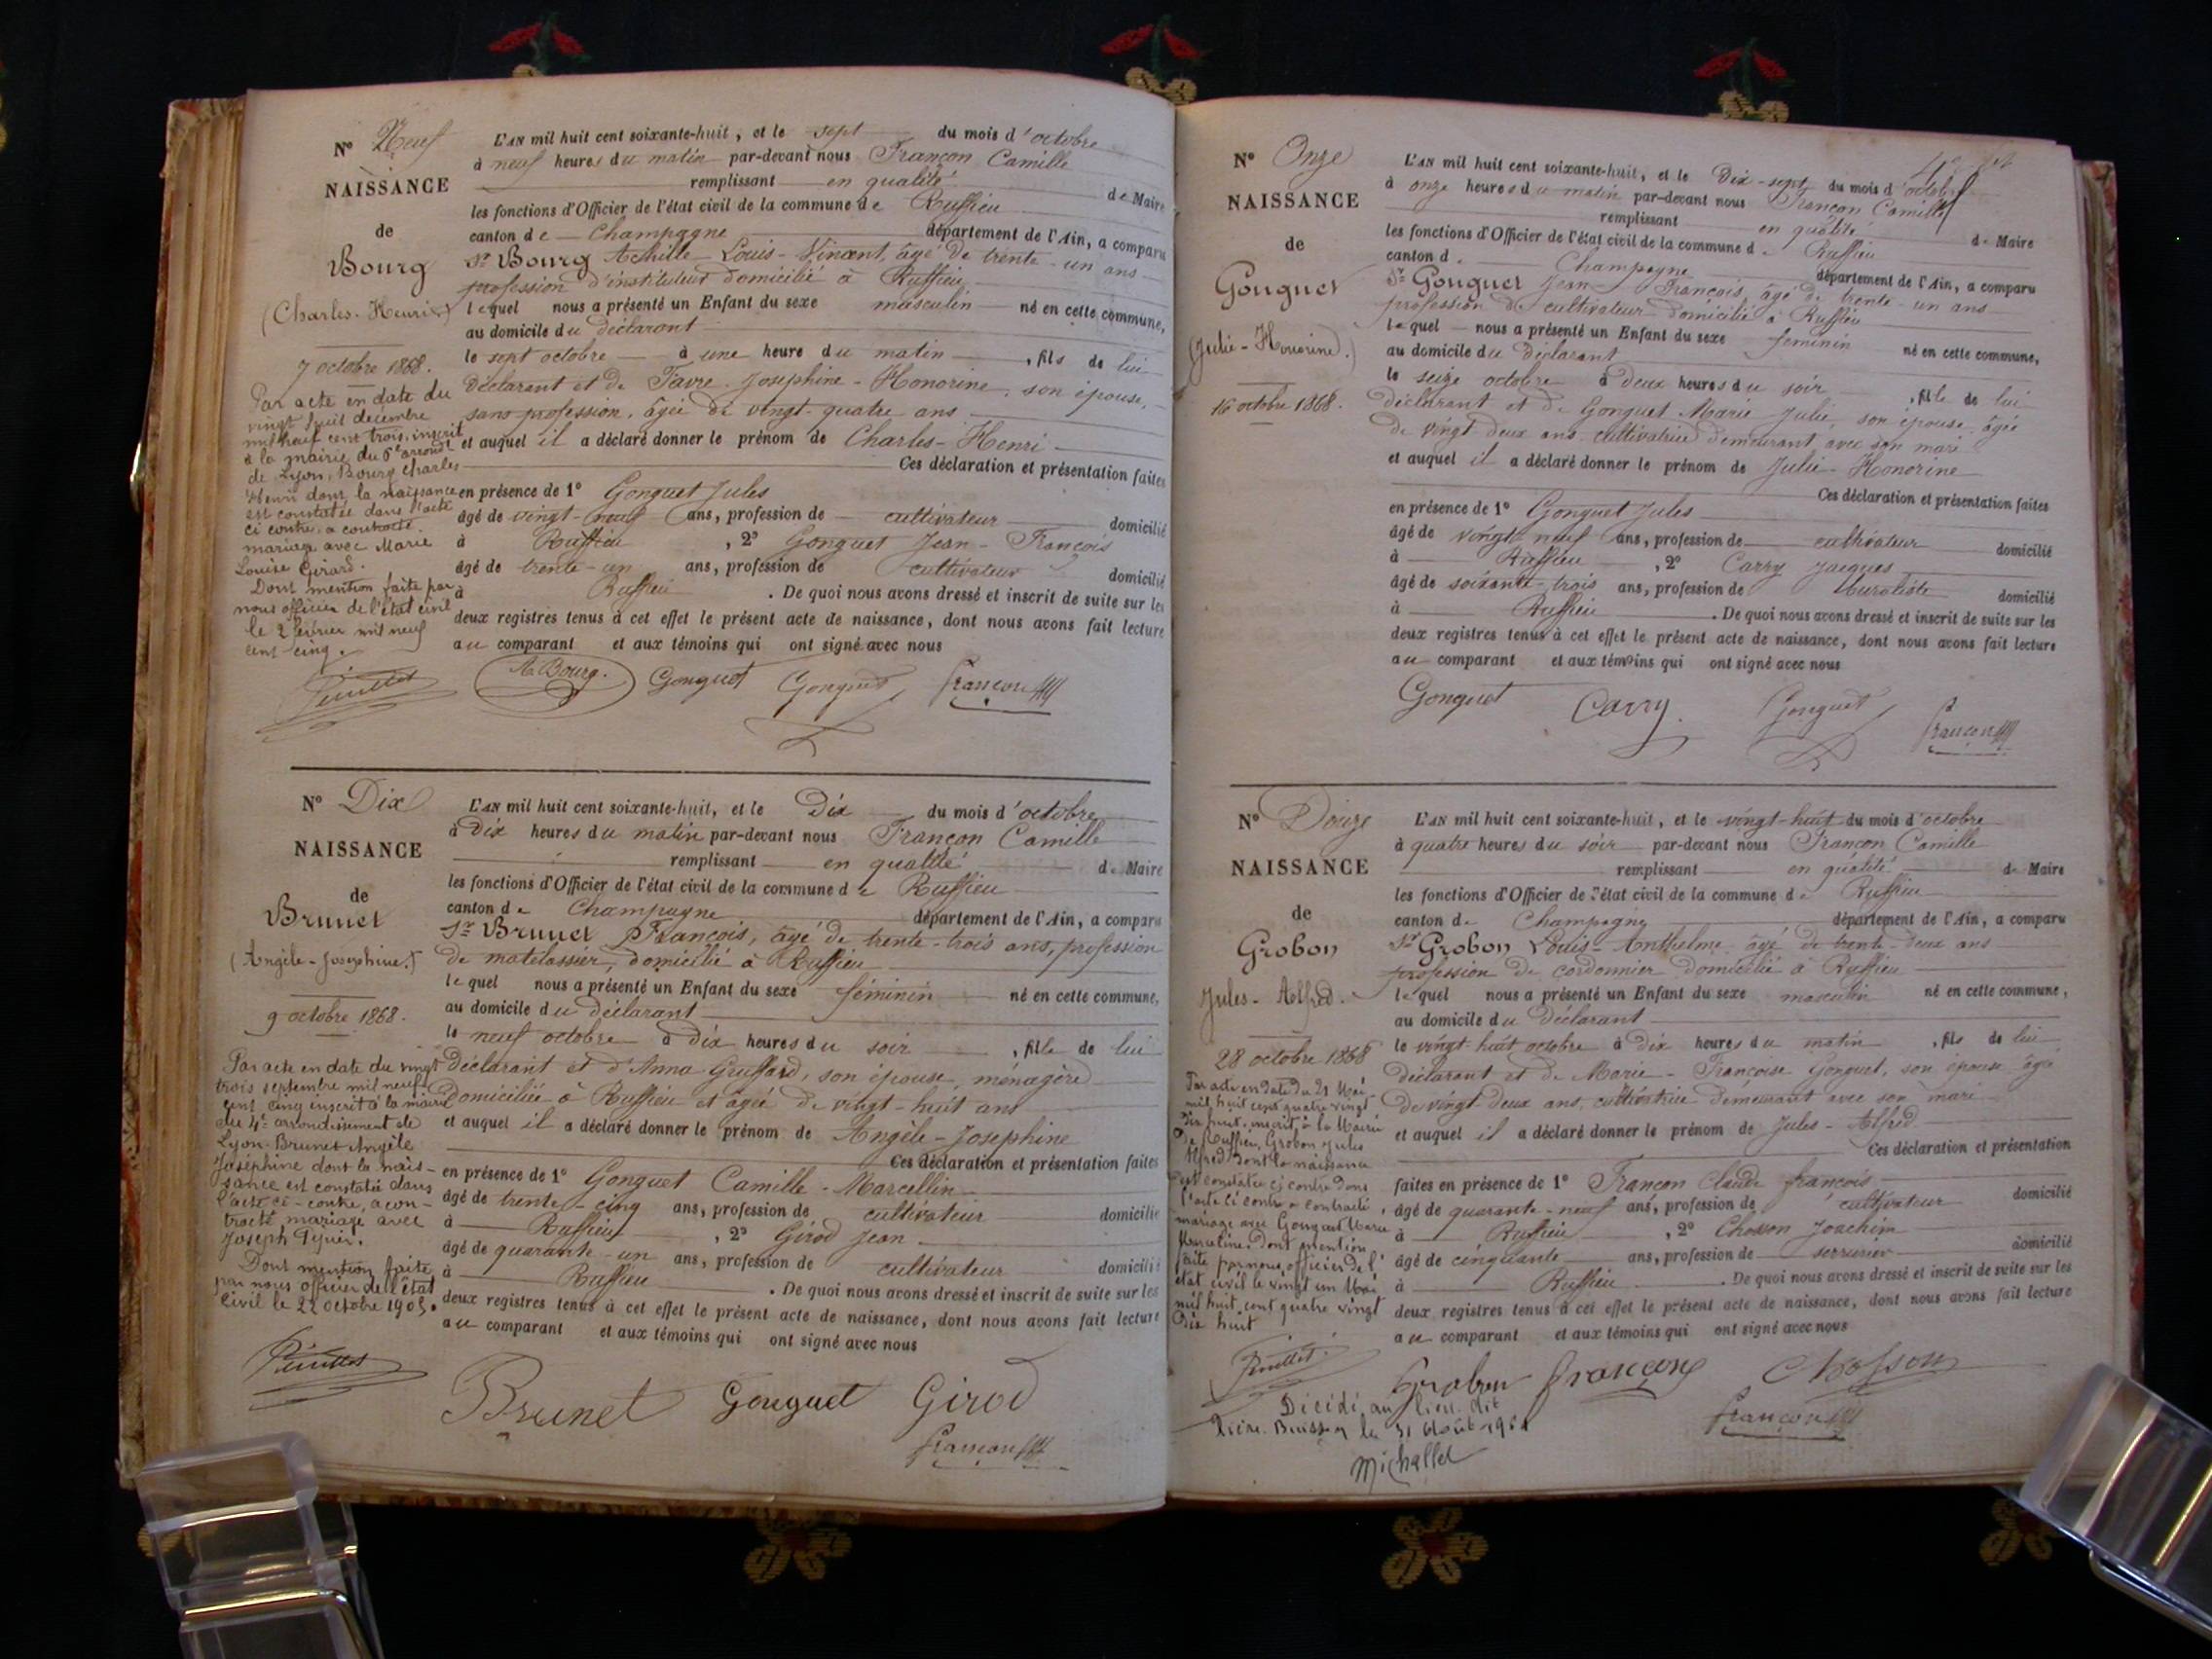 N° Neuf
NAISSANCE
de
Bourg
(Charles-Henri.)
7 octobre 1868.
Par acte en date du
vingt huit décembre
mil neuf cent trois, inscrit
à la mairie du 6e arrondt
de Lyon, Bourg Charles
Henri dont la naissance
est constatée dans l'acte
ci contre, a contracté
mariage avec Marie
Louise Girard.
Dont mention faite par
nous officier de l'état civil
le 2 février mil neuf
cent cinq.
L'AN mil huit cent soixante-huit, et le sept du mois d'octobre
à neuf heures du matin par-devant nous Françon Camille
remplissant en qualité de Maire
les fonctions d'Officier de l'état civil de la commune de Ruffieu
canton de Champagne département de l'Ain, a comparu
Sr Bourg Achille-Louis-Vincent, âgé de trente-un ans
profession d'instituteur domicilié à Ruffieu
lequel nous a présenté un Enfant du sexe masculin né en cette commune,
au domicile du déclarant
le sept octobre à une heure du matin, fils de lui
déclarant et de Favre Josephine-Honorine, son épouse,
sans profession, âgée de vingt-quatre ans
et auquel il a déclaré donner le prénom de Charles-Henri
Ces déclaration et présentation faites
en présence de 1° Gonguet Jules
âgé de vingt-neuf ans, profession de cultivateur domicilié
à Ruffieu, 2° Gonguet Jean-François
âgé de trente-un ans, profession de cultivateur domicilié
à Ruffieu. De quoi nous avons dressé et inscrit de suite sur les
deux registres tenus à cet effet le présent acte de naissance, dont nous avons fait lecture
au comparant et aux témoins qui ont signé avec nous
A Bourg. Gonguet Gonguet Françon
N° Dix
NAISSANCE
de
Brunet
(Angèle-Josephine.)
9 octobre 1868.
Par acte en date du vingt
trois septembre mil neuf
cent cinq inscrit à la mairie
du 4e arrondissement de
Lyon Brunet Angèle
Joséphine dont la nais-
sance est constatée dans
l'acte ci-contre, a con-
tracté mariage avec
Joseph
Dont mention faite
par nous officier de l'état
civil le 22 octobre 1905.
L'AN mil huit cent soixante-huit, et le Dix du mois d'octobre
à Dix heures du matin par-devant nous Françon Camille
remplissant en qualité de Maire
les fonctions d'Officier de l'état civil de la commune de Ruffieu
canton de Champagne département de l'Ain, a comparu
Sr Brunet François, âgé de trente-trois ans, profession
de matelassier, domicilié à Ruffieu
lequel nous a présenté un Enfant du sexe féminin né en cette commune,
au domicile du déclarant
le neuf octobre à dix heures du soir, fille de lui
déclarant et d'Anna Gruffard, son épouse, ménagère
domiciliée à Ruffieu et âgée de vingt-huit ans
et auquel il a déclaré donner le prénom de Angèle-Josephine
Ces déclaration et présentation faites
en présence de 1° Gonguet Camille-Marcellin
âgé de trente-cinq ans, profession de cultivateur domicilié
à Ruffieu, 2° Girod Jean
âgé de quarante-un ans, profession de cultivateur domicilié
à Ruffieu. De quoi nous avons dressé et inscrit de suite sur les
deux registres tenus à cet effet le présent acte de naissance, dont nous avons fait lecture
au comparant et aux témoins qui ont signé avec nous
Brunet Gonguet Girod
Françon
N° Onze
NAISSANCE
de
Gonguet
(Julie-Honorine.)
16 octobre 1868.
L'AN mil huit cent soixante-huit, et le Dix-sept du mois d'octobre
à onze heures du matin par-devant nous Françon Camille
remplissant en qualité de Maire
les fonctions d'Officier de l'état civil de la commune de Ruffieu
canton de Champagne département de l'Ain, a comparu
Sr Gonguet Jean-François, âgé de trente-un ans
profession de cultivateur domicilié à Ruffieu
lequel nous a présenté un Enfant du sexe féminin né en cette commune,
au domicile du déclarant
le seize octobre à deux heures du soir, fille de lui
déclarant et de Gonguet Marie Julie, son épouse, âgée
de vingt-deux ans, cultivatrice demeurant avec son mari
et auquel il a déclaré donner le prénom de Julie-Honorine
Ces déclaration et présentation faites
en présence de 1° Gonguet Jules
âgé de vingt neuf ans, profession de cultivateur domicilié
à Ruffieu, 2° Carry Jacques
âgé de soixante-trois ans, profession de buraliste domicilié
à Ruffieu. De quoi nous avons dressé et inscrit de suite sur les
deux registres tenus à cet effet le présent acte de naissance, dont nous avons fait lecture
au comparant et aux témoins qui ont signé avec nous
Gonguet Carry Gonguet
Françon
N° Douze
NAISSANCE
de
Grobon
Jules-Alfred.
28 octobre 1868
Par acte en date du 21 Mai
mil huit cent quatre vingt
dix huit, inscrit à la Mairie
de Ruffieu, Grobon Jules
Alfred dont la naissance
est constatée ci contre dans
l'acte ci contre a contracté
mariage avec Gonguet Marie
Marceline, dont mention
faite par nous, officier de l'
état civil le vingt un Mai
mil huit cent quatre vingt
dix huit
L'AN mil huit cent soixante-huit, et le vingt-huit du mois d'octobre
à quatre heures du soir par-devant nous Françon Camille
remplissant en qualité de Maire
les fonctions d'Officier de l'état civil de la commune de Ruffieu
canton de Champagne département de l'Ain, a comparu
Sr Grobon Louis-Anthelme âgé de trente-deux ans
profession de cordonnier domicilié à Ruffieu
lequel nous a présenté un Enfant du sexe masculin né en cette commune,
au domicile du déclarant
le vingt-huit octobre à dix heures du matin, fils de lui
déclarant et de Marie-Françoise Gonguet, son épouse âgée
de vingt deux ans, cultivatrice demeurant avec son mari
et auquel il a déclaré donner le prénom de Jules-Alfred
Ces déclaration et présentation
faites en présence de 1° Françon Claude françois
âgé de quarante-neuf ans, profession de cultivateur domicilié
à Ruffieu, 2° Chosson Joachim
âgé de cinquante ans, profession de serrurier domicilié
à Ruffieu. De quoi nous avons dressé et inscrit de suite sur les
deux registres tenus à cet effet le présent acte de naissance, dont nous avons fait lecture
au comparant et aux témoins qui ont signé avec nous
Grobon françon Chosson
Françon
Décédé au lieu dit
le 31 Août
Michallet